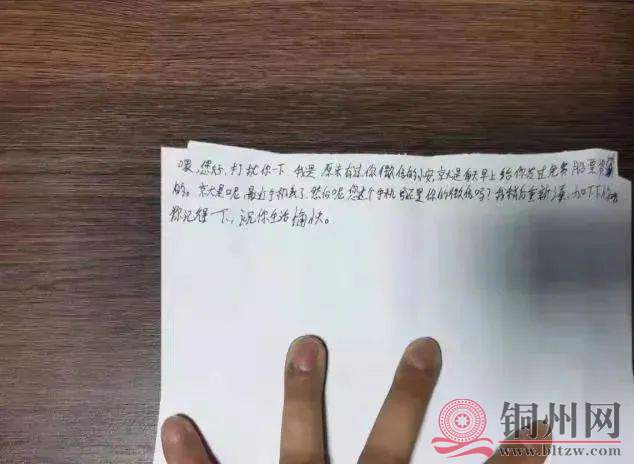 喂,您好,打扰你下 我是 原来有过你微信的小安 就是每天早上给你发过免费 股票
的。就是呢 最近手机丢了.然后呢,您这个手机号还是你的微信吗?我稍后重新 添加下
你记得一下.,祝你生活愉快。
铜州网
www.bltzw.com